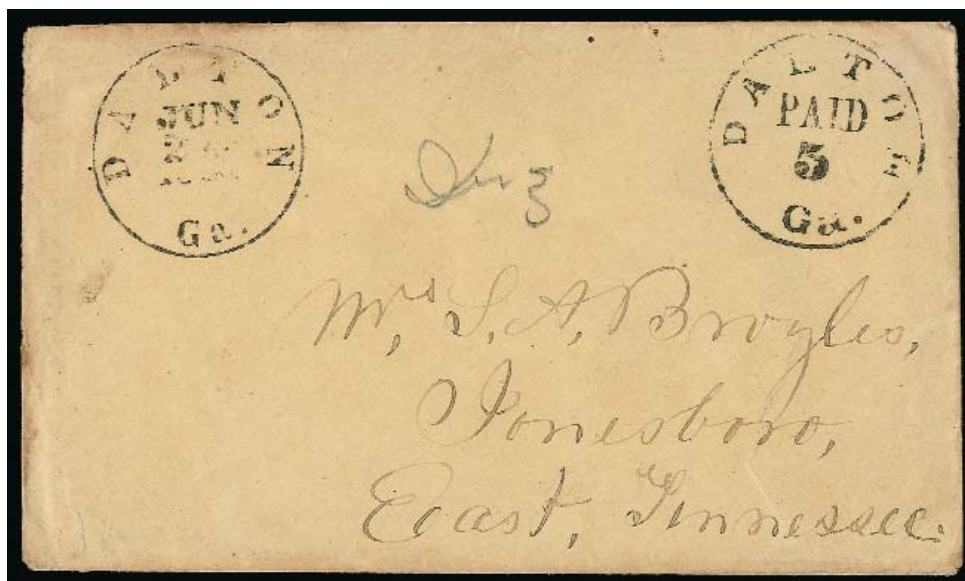 DALTON
JUN
Ga.
DALTON
PAID
5
Ga.
Mrs S. A. Broyles,
Jonesboro,
East, Tennessee.